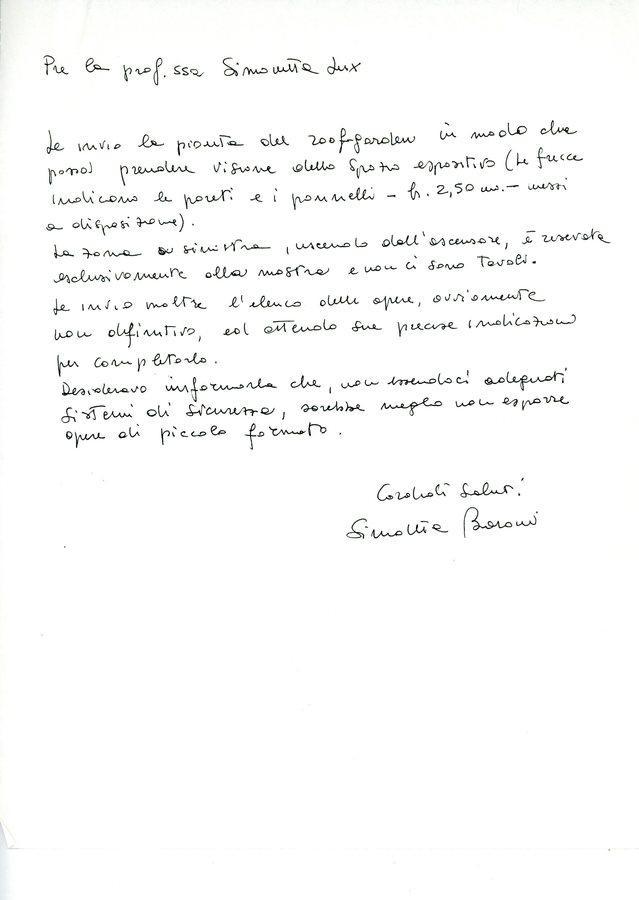 Per la prof.ssa Simonetta Lux
Le invio la pianta del roof-garden in modo che
possa prendere visione dello spazio espositivo (le frecce
indicano le pareti e i pannelli - h. 2,50 m. - messi
a disposizione).
La zona a sinistra, uscendo dall'ascensore, è riservata
esclusivamente alla mostra e non ci sono tavoli.
Le invio inoltre l'elenco delle opere, ovviamente
non definitivo, ed attendo sue precise indicazioni
per completarlo.
Desideravo informarla che, non essendoci adeguati
sistemi di sicurezza, sarebbe meglio non esporre
opere di piccolo formato.
Cordiali saluti
Simonetta Baroni